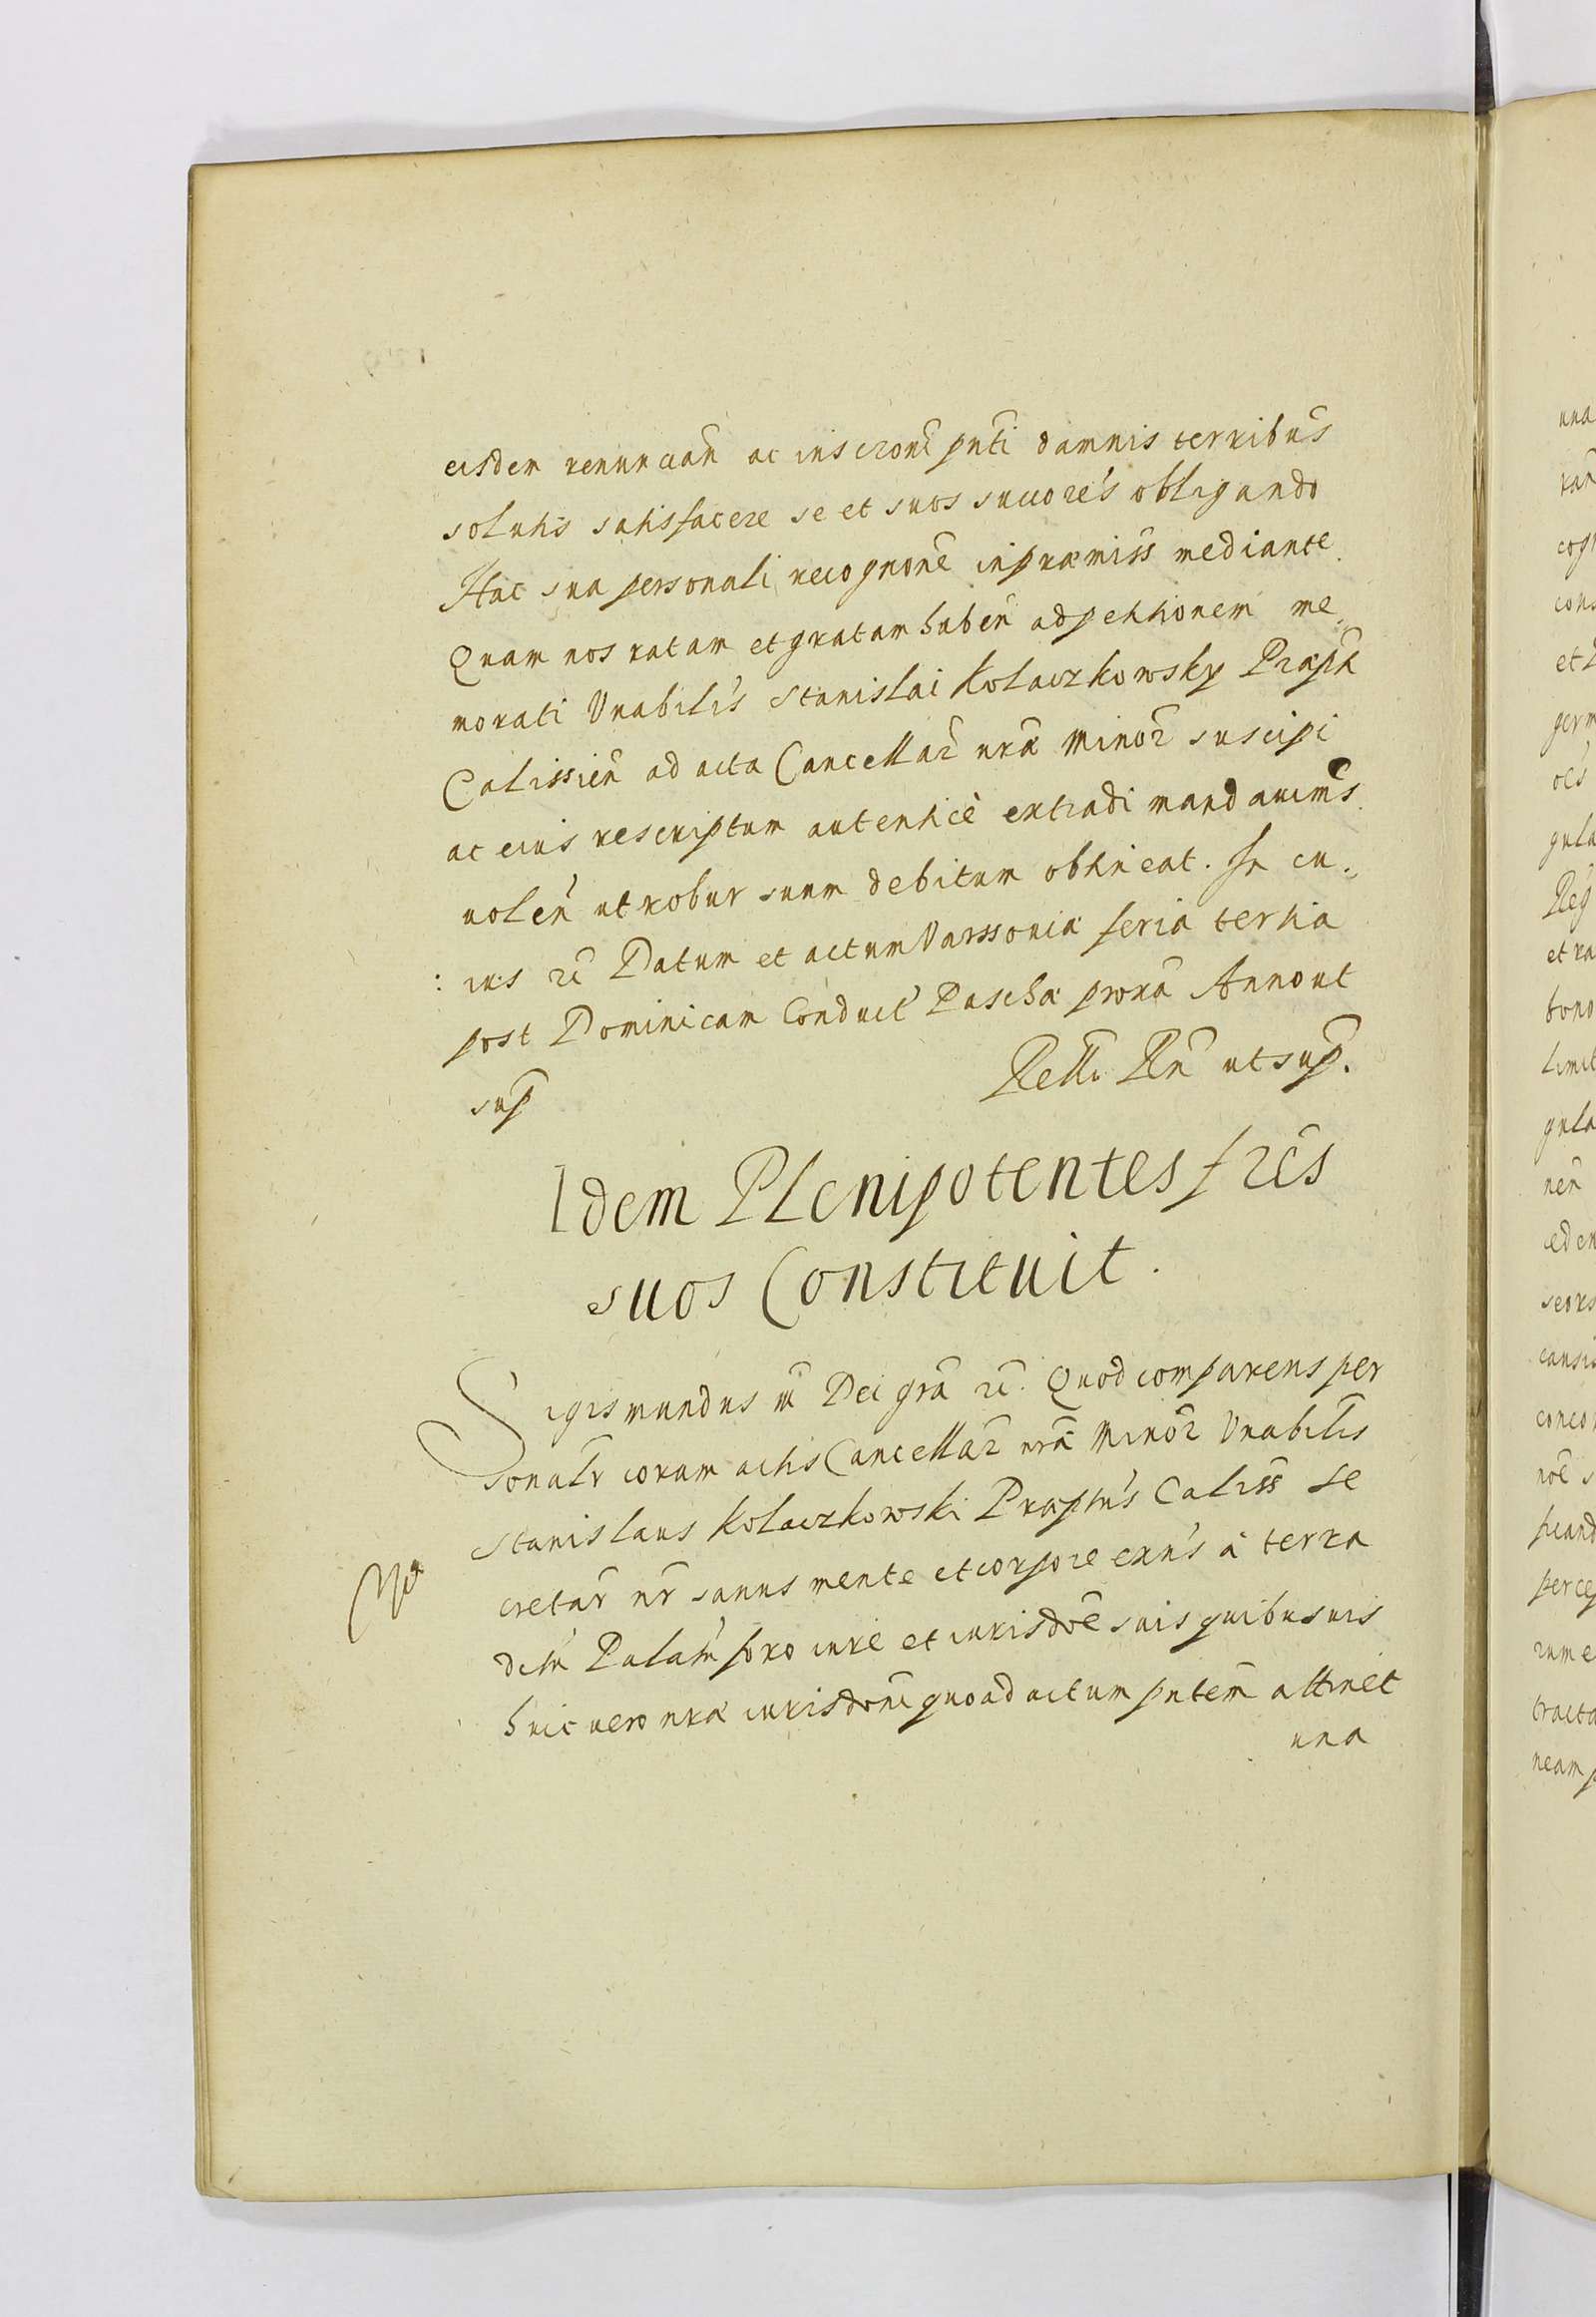 eisdem renunciañ ac inscrōni pñti damnis terribũs
solutis satisfacere se et suos succores obligando
Hac sua personali recognone in præmiss mediante
Quam nos ratam et gratam haben̄ ad petitionem me„
morati Vnabilis Stanislai Kolaczkowsky Præpti
Calissień ad acta Cancellar̃ nrã Minor̃ suscipi
ac eius rescriptum autenticè extradi mandauim̃s
uolen̄ ut robur suum debitum obtineat. In cu„
: ius rẽ Datum et actum Varssouiæ feria tertia
post Dominicam Conduct Paschæ proxã Anno ut
sup̃
Relli Rñ ut sup̃.
Idem Plenipotentes fr̃es
suos Constituit.
Sigismundus iii Dei grã rẽ. Quod comparens per
sonalr coram actis Cancellar̃ nrã Minor̃ Vnabilis
Stanislaus Kolaczkowski Præptus Caliss Se
cretar̃ nr̃ sanus mente et corpore exñs à terra
dictń Palatń foro iure et iurisdõe suis quibusuis
huic uero nræ iurisdõni quo ad actum pñtem attinet
una